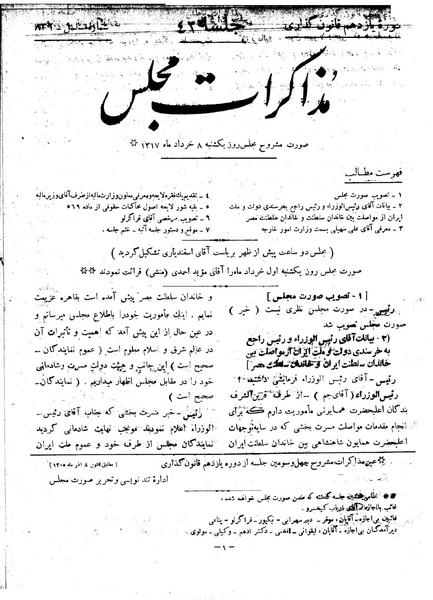 دوره یازدهم قانون گذاری
جلسه ۴۳
مذاکرات مجلس
صورت مشروح مجلس روز یکشنبه ۸ خرداد ماه ۱۳۱۷ *
فهرست مطالب
۱ - تصویب صورت مجلس
۲ - بیانات آقای نخست الوزراء و رئیس راجع بخرسندی دولت و ملت
ایران از مواصلت بین خاندان سلطنت و خاندان سلطنت مصر
۳ - معرفی آقای علی سهیلی بسمت وزارت امور خارجه
۴ - تقدیم یک فقره لایحه و معرفی معاون وزارت مالیه از طرف آقای وزیر مالیه
۵ - بقیه شور لایحه اصول محاکمات حقوقی از ماده ۵۶۹
۶ - تصویب مرخصی آقای قراگزلو
۷ - موقع و دستور جلسه آتیه - ختم جلسه
(مجلس دو ساعت پیش از ظهر بریاست آقای اسفندیاری تشکیل گردید)
صورت مجلس روز یکشنبه اول خرداد ماه را آقای مؤید احمدی (منشی) قرائت نمودند **
[۱ - تصویب صورت مجلس]
رئیس - در صورت مجلس نظری نیست (خیر)
صورت مجلس تصویب شد
(۲ - بیانات آقای رئیس الوزراء و رئیس راجع
به خرسندی دولت و ملت ایران از مواصلت بین
خاندان سلطنت ایران و خاندان سلطنت مصر]
رئیس - آقای رئیس الوزراء فرمایشی داشتید؟
رئیس الوزراء (آقای جم) - از طرف قرین الشرف
بندگان اعلیحضرت همایونی مأموریت دارم که برای
انجام مقدمات مواصلت مسرت بخشی که در سایه توجهات
اعلیحضرت همایون شاهنشاهی بین خاندان سلطنت ایران
و خاندان سلطنت مصر پیش آمده است بقاهره عزیمت
نمایم. اینک مأموریت خود را باطلاع مجلس میرسانم و
در عین حال از این پیش آمد که اهمیت و تأثیرات آن
در عالم شرق و اسلام معلوم است (عموم نمایندگان -
صحیح است) این جانب و هیئت دولت مسرت و شادمانی
خود را در مقابل مجلس اظهار میداریم. (نمایندگان -
صحیح است)
رئیس - خبر مسرت بخشی که جناب آقای رئیس
الوزراء اعلام نمودند موجب نهایت شادمانی گردید
نمایندگان مجلس از طرف خود و عموم ملت ایران
* عین مذاکرات مشروح چهل و سومین جلسه از دوره یازدهم قانون گذاری
(مطابق قانون ۸ آذر ماه ۱۳۰۵)
اداره تند نویسی و تحریر صورت مجلس
** اسامی غائبین جلسه گذشته که ضمن صورت مجلس خوانده شده:
غائبین بی اجازه - آقایان: موقر - دبیر سهرابی - نیکپور - قراگزلو - پناهی
دیر آمدگان بی اجازه - آقایان: لیقوانی - افخمی - دکتر ادهم - وکیلی - مولوی.
- ۱ -